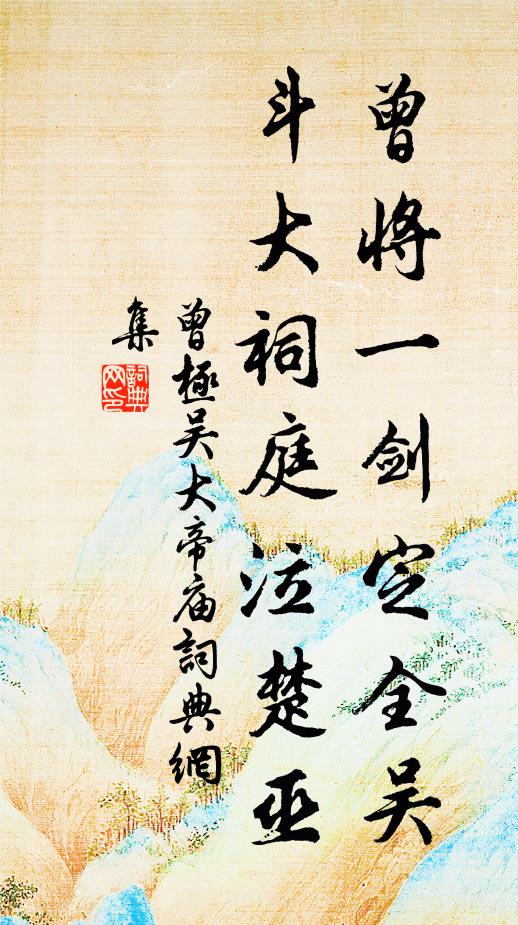 曾将一剑定全吴
斗大祠庭泣楚巫
曾極吴大帝庙詞典網
集
詞典网印